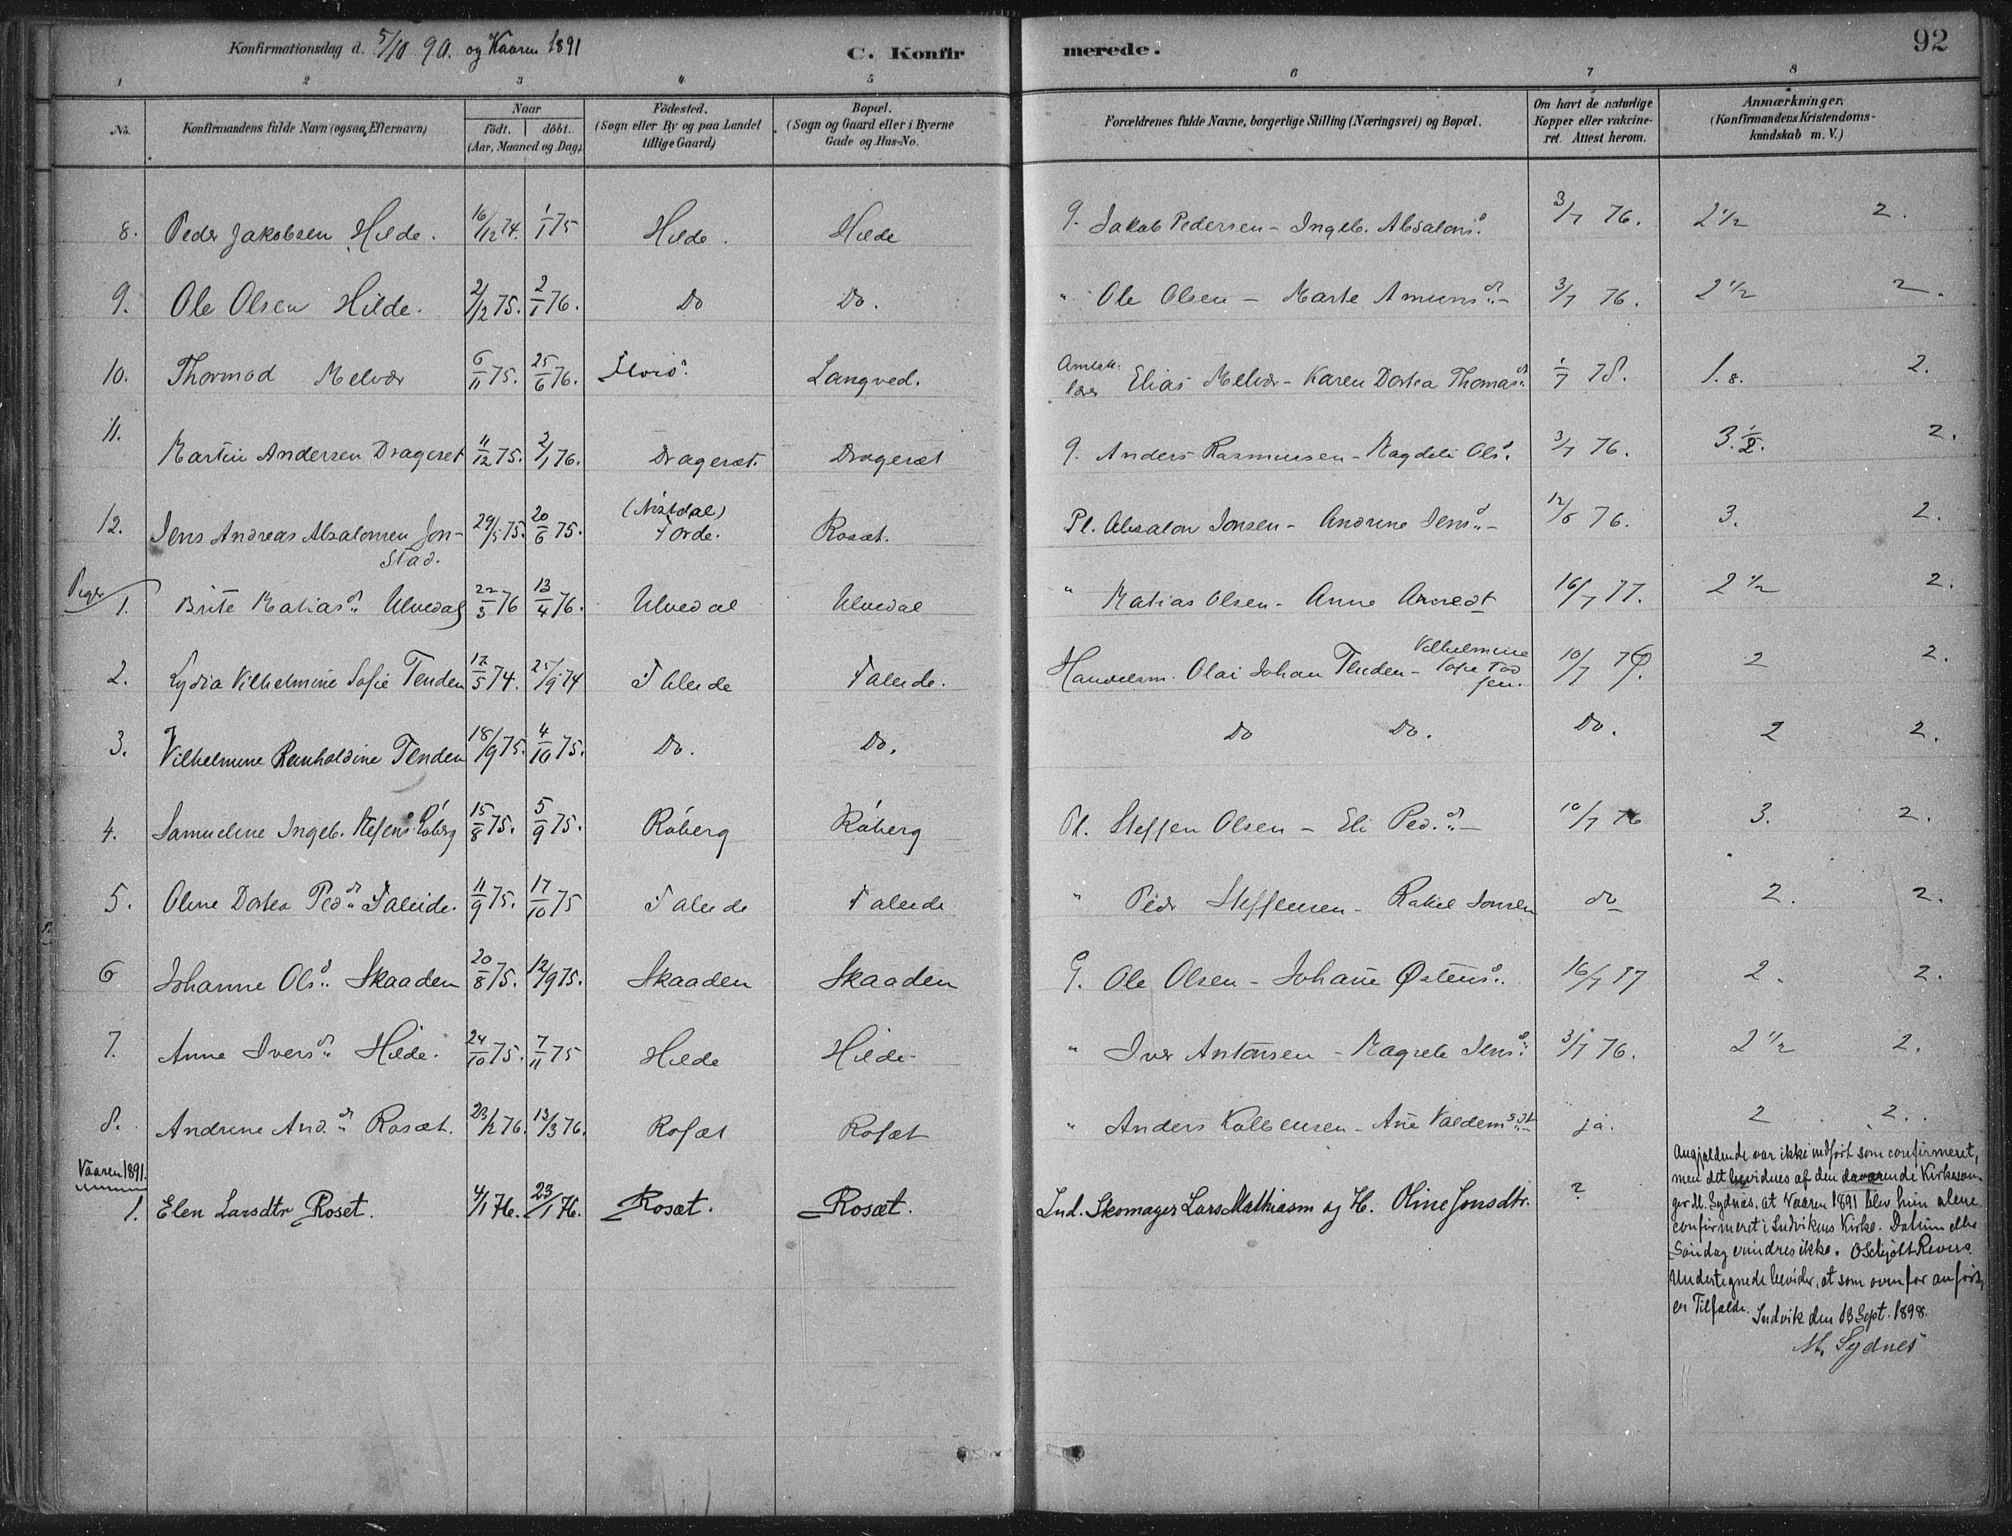 Konfirmationsdag d. 5/10 90. og Vaaren 1891 C. Konfirmerede. 92
1 2 3 4 5 6 7 8
No. Konfirmandens fulde Navn (ogsaa Efternavn) Naar födt. döbt. (Aar, Maaned og Dag) Födested. (Sogn eller By og paa Landet tillige Gaard) Bopæl. (Sogn og Gaard eller i Byerne Gade og Hus-No. Forældrenes fulde Navne, borgerlige Stilling (Næringsvei) og Bopæl. Om havt de naturlige Kopper eller vakcineret. Attest herom. Anmærkninger. (Konfirmandens Kristendomskundskab m. V.)
8. Peder Jakobsen Hilde. 16/12 74. 1/1 75 Hilde. Hilde G. Jakob Pedersen - Ingeb. Absalons d. 3/7 76. 2 1/2 2.
9. Ole Olsen Hilde. 2/12 75. 2/1 76. Do Do. " Ole Olsen - Marte Amuns d. - 3/7 76. 2 1/2 2.
10. Thormod Melvær 6/11 75. 25/6 76. Langved. Elias Melvær - Karen Dortea Thomas d. 1/7 78. 1.8. 2.
11. Martin Andersen Drageset 11/12 75. 2/1 76. Drageset. Drageset G. Anders Rasmussen - Magdeli Ols d. 3/7 76. 3. 1/2. 2.
12. Jens Andreas Absalonsen Jon- 29/5 75. 20/6 75. Förde. Rosæt. Pl. Absalon Jonsen - Andrine Jens d - 12/8 76. 3. 2.
stad.
Piger
1. Brite Matias d. Ulvedal 22/3 76 13/4 76. Ulvedal Ulvedal " Matias Olsen - Anne 16/7 77. 2 1/2 2.
2. Lydia Vilhelmine Sofie Tenden 12/5 74. 25/9 74 Faleide Faleide. Handelsm. Olai Johan Tenden - Vilhelmine 10/7 76. 2 2.
3. Vilhelmine Reinholdine Tenden 18/9 75. 4/10 75. Do. Do. Do Do. Do. 2 2.
4. Samueline Ingeb. Stefens d Röberg 15/8 75. 5/9 75. Röberg Röberg Pl. Steffen Olsen - Eli Ped. d. - 10/7 76 3. 2.
5. Oline Dortea Ped d. Faleide. 11/9 75. 17/10 75 Faleide Faleide " Peder Steffensen - Rakel Jonsen do 2. 2.
6 Johanne Ols d. Skaaden 20/8 75. 12/9 75. Skaaden Skaaden G. Ole Olsen - Johane Østens d. 16/7 77 2. 2.
7. Anne Ivers d. Hilde. 24/10 75. 7/11 75 Hilde Hilde. " Iver Antonsen - Magrete Jens d. 3/7 76. 2 1/2 2.
8. Andrine And. d. Rosæt. 23/2 76. 13/3 76. Rosæt Rosæt " Anders Kolbensen - Ane ja. 2 2.
Vaaren 1891.
1. Elen Larsdtr Roset. 4/1 76. 23/1 76. Rosæt. Rosæt. Ind. Skomager Lars Mathiasm og H. Oline Jonsdtr. ?
Angjældende var ikke indført som confirmeret,
men det bevidnes af den daværende Kirkesan-
ger M. Sydnæs, at Vaaren 1891 blev hun alene
confirmeret i Indvikens Kirke. Datum eller
Søndag mindres ikke. O Schjött Revers
Undertegnede bevider, at som ovenfor anført,
er Tilfælde. Indvik den 13 Sept. 1898.
M. Sydnes